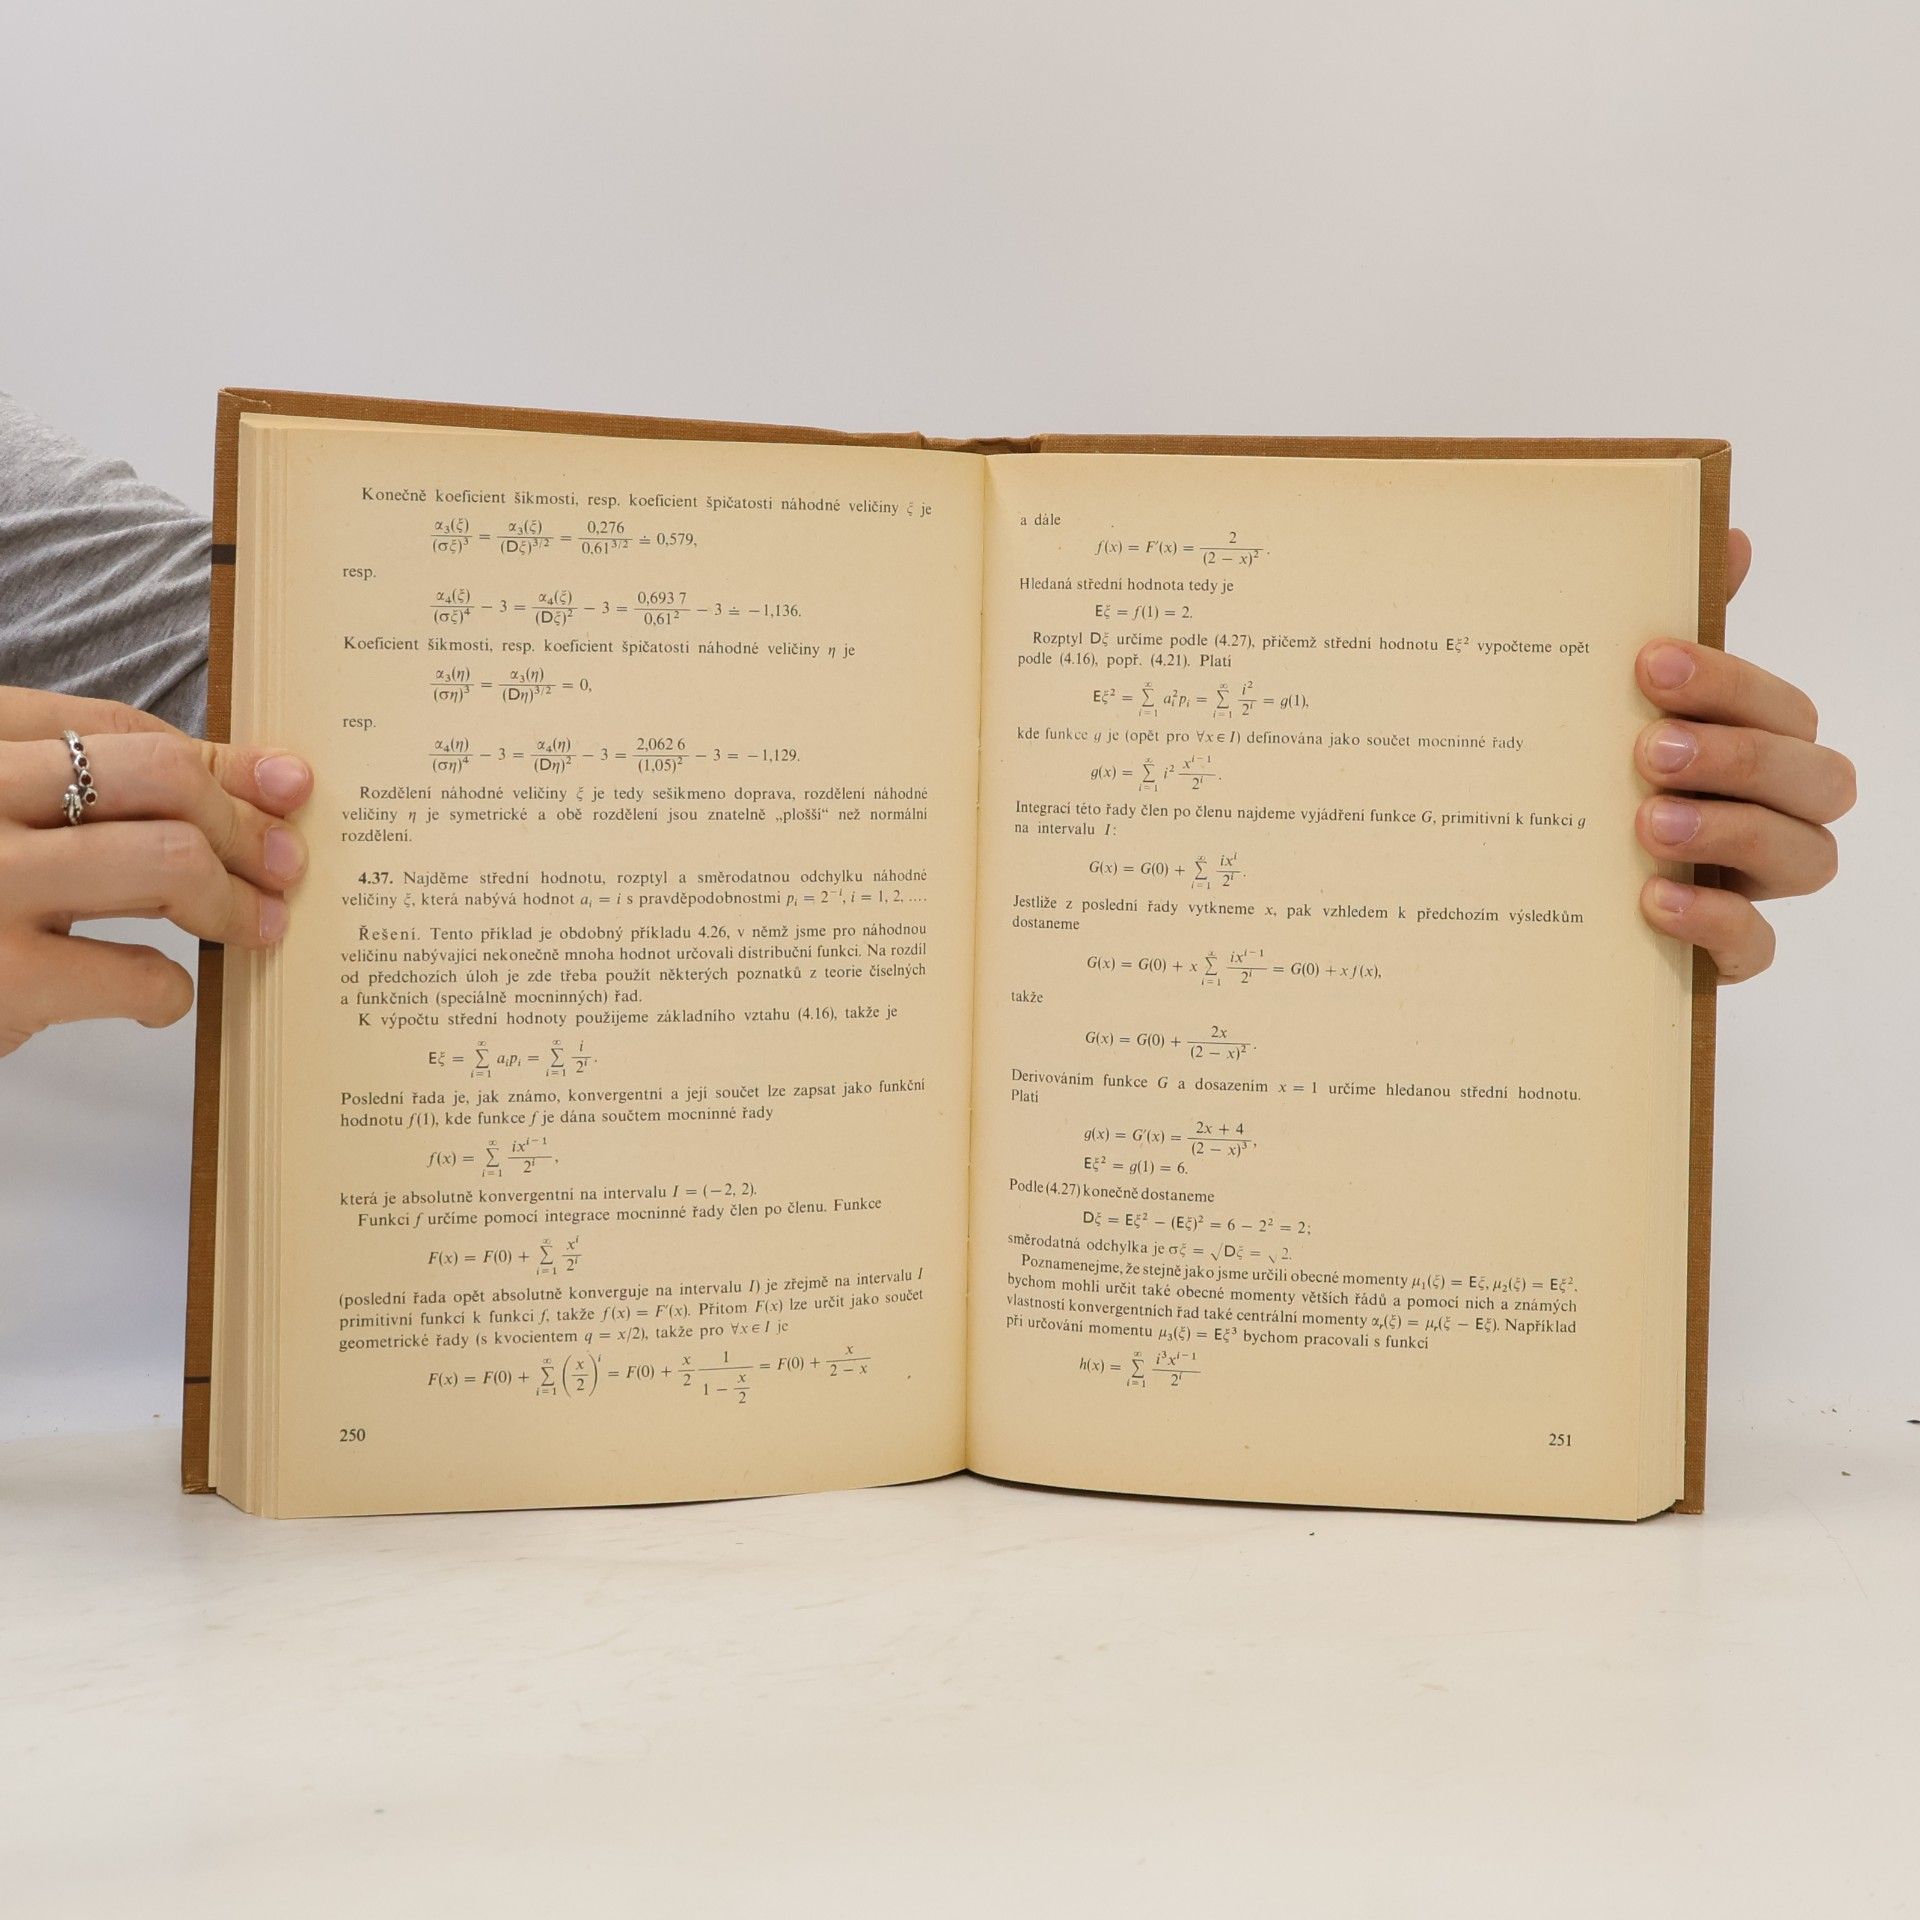 Konečně koeficient šikmosti, resp. koeficient špičatosti náhodné veličiny ξ je
α₃(ξ)/(σξ)³ = α₃(ξ)/(Dξ)^{3/2} = 0,276/0,61^{3/2} ≐ 0,579,
resp.
α₄(ξ)/(σξ)⁴ − 3 = α₄(ξ)/(Dξ)² − 3 = 0,693 7/0,61² − 3 ≐ −1,136.
Koeficient šikmosti, resp. koeficient špičatosti náhodné veličiny η je
α₃(η)/(ση)³ = α₃(η)/(Dη)^{3/2} = 0,
resp.
α₄(η)/(ση)⁴ − 3 = α₄(η)/(Dη)² − 3 = 2,062 6/(1,05)² − 3 = −1,129.
Rozdělení náhodné veličiny ξ je tedy sešikmeno doprava, rozdělení náhodné
veličiny η je symetrické a obě rozdělení jsou znatelně „plošší“ než normální
rozdělení.
4.37. Najděme střední hodnotu, rozptyl a směrodatnou odchylku náhodné
veličiny ξ, která nabývá hodnot aᵢ = i s pravděpodobnostmi pᵢ = 2⁻ⁱ, i = 1, 2, ....
Řešení. Tento příklad je obdobný příkladu 4.26, v němž jsme pro náhodnou
veličinu nabývající nekonečně mnoha hodnot určovali distribuční funkci. Na rozdíl
od předchozích úloh je zde třeba použít některých poznatků z teorie číselných
a funkčních (speciálně mocninných) řad.
K výpočtu střední hodnoty použijeme základního vztahu (4.16), takže je
Eξ = ∑_{i=1}^{∞} aᵢpᵢ = ∑_{i=1}^{∞} i/2ⁱ.
Poslední řada je, jak známo, konvergentní a její součet lze zapsat jako funkční
hodnotu f(1), kde funkce f je dána součtem mocninné řady
f(x) = ∑_{i=1}^{∞} ix^{i−1}/2ⁱ,
která je absolutně konvergentní na intervalu I = (−2, 2).
Funkci f určíme pomocí integrace mocninné řady člen po členu. Funkce
F(x) = F(0) + ∑_{i=1}^{∞} xⁱ/2ⁱ
(poslední řada opět absolutně konverguje na intervalu I) je zřejmě na intervalu I
primitivní funkcí k funkci f, takže f(x) = F′(x). Přitom F(x) lze určit jako součet
geometrické řady (s kvocientem q = x/2), takže pro ∀x ∈ I je
F(x) = F(0) + ∑_{i=1}^{∞} (x/2)ⁱ = F(0) + x/2 1/(1 − x/2) = F(0) + x/(2 − x)
250
a dále
f(x) = F′(x) = 2/(2 − x)².
Hledaná střední hodnota tedy je
Eξ = f(1) = 2.
Rozptyl Dξ určíme podle (4.27), přičemž střední hodnotu Eξ² vypočteme opět
podle (4.16), popř. (4.21). Platí
Eξ² = ∑_{i=1}^{∞} aᵢ²pᵢ = ∑_{i=1}^{∞} i²/2ⁱ = g(1),
kde funkce g je (opět pro ∀x ∈ I) definována jako součet mocninné řady
g(x) = ∑_{i=1}^{∞} i² x^{i−1}/2ⁱ.
Integrací této řady člen po členu najdeme vyjádření funkce G, primitivní k funkci g
na intervalu I:
G(x) = G(0) + ∑_{i=1}^{∞} ixⁱ/2ⁱ.
Jestliže z poslední řady vytkneme x, pak vzhledem k předchozím výsledkům
dostaneme
G(x) = G(0) + x ∑_{i=1}^{∞} ix^{i−1}/2ⁱ = G(0) + x f(x),
takže
G(x) = G(0) + 2x/(2 − x)².
Derivováním funkce G a dosazením x = 1 určíme hledanou střední hodnotu.
Platí
g(x) = G′(x) = (2x + 4)/(2 − x)³,
Eξ² = g(1) = 6.
Podle (4.27) konečně dostaneme
Dξ = Eξ² − (Eξ)² = 6 − 2² = 2;
směrodatná odchylka je σξ = √Dξ = √2.
Poznamenejme, že stejně jako jsme určili obecné momenty μ₁(ξ) = Eξ, μ₂(ξ) = Eξ²,
bychom mohli určit také obecné momenty větších řádů a pomocí nich a známých
vlastností konvergentních řad také centrální momenty αᵣ(ξ) = μᵣ(ξ − Eξ). Například
při určování momentu μ₃(ξ) = Eξ³ bychom pracovali s funkcí
h(x) = ∑_{i=1}^{∞} i³x^{i−1}/2ⁱ
251